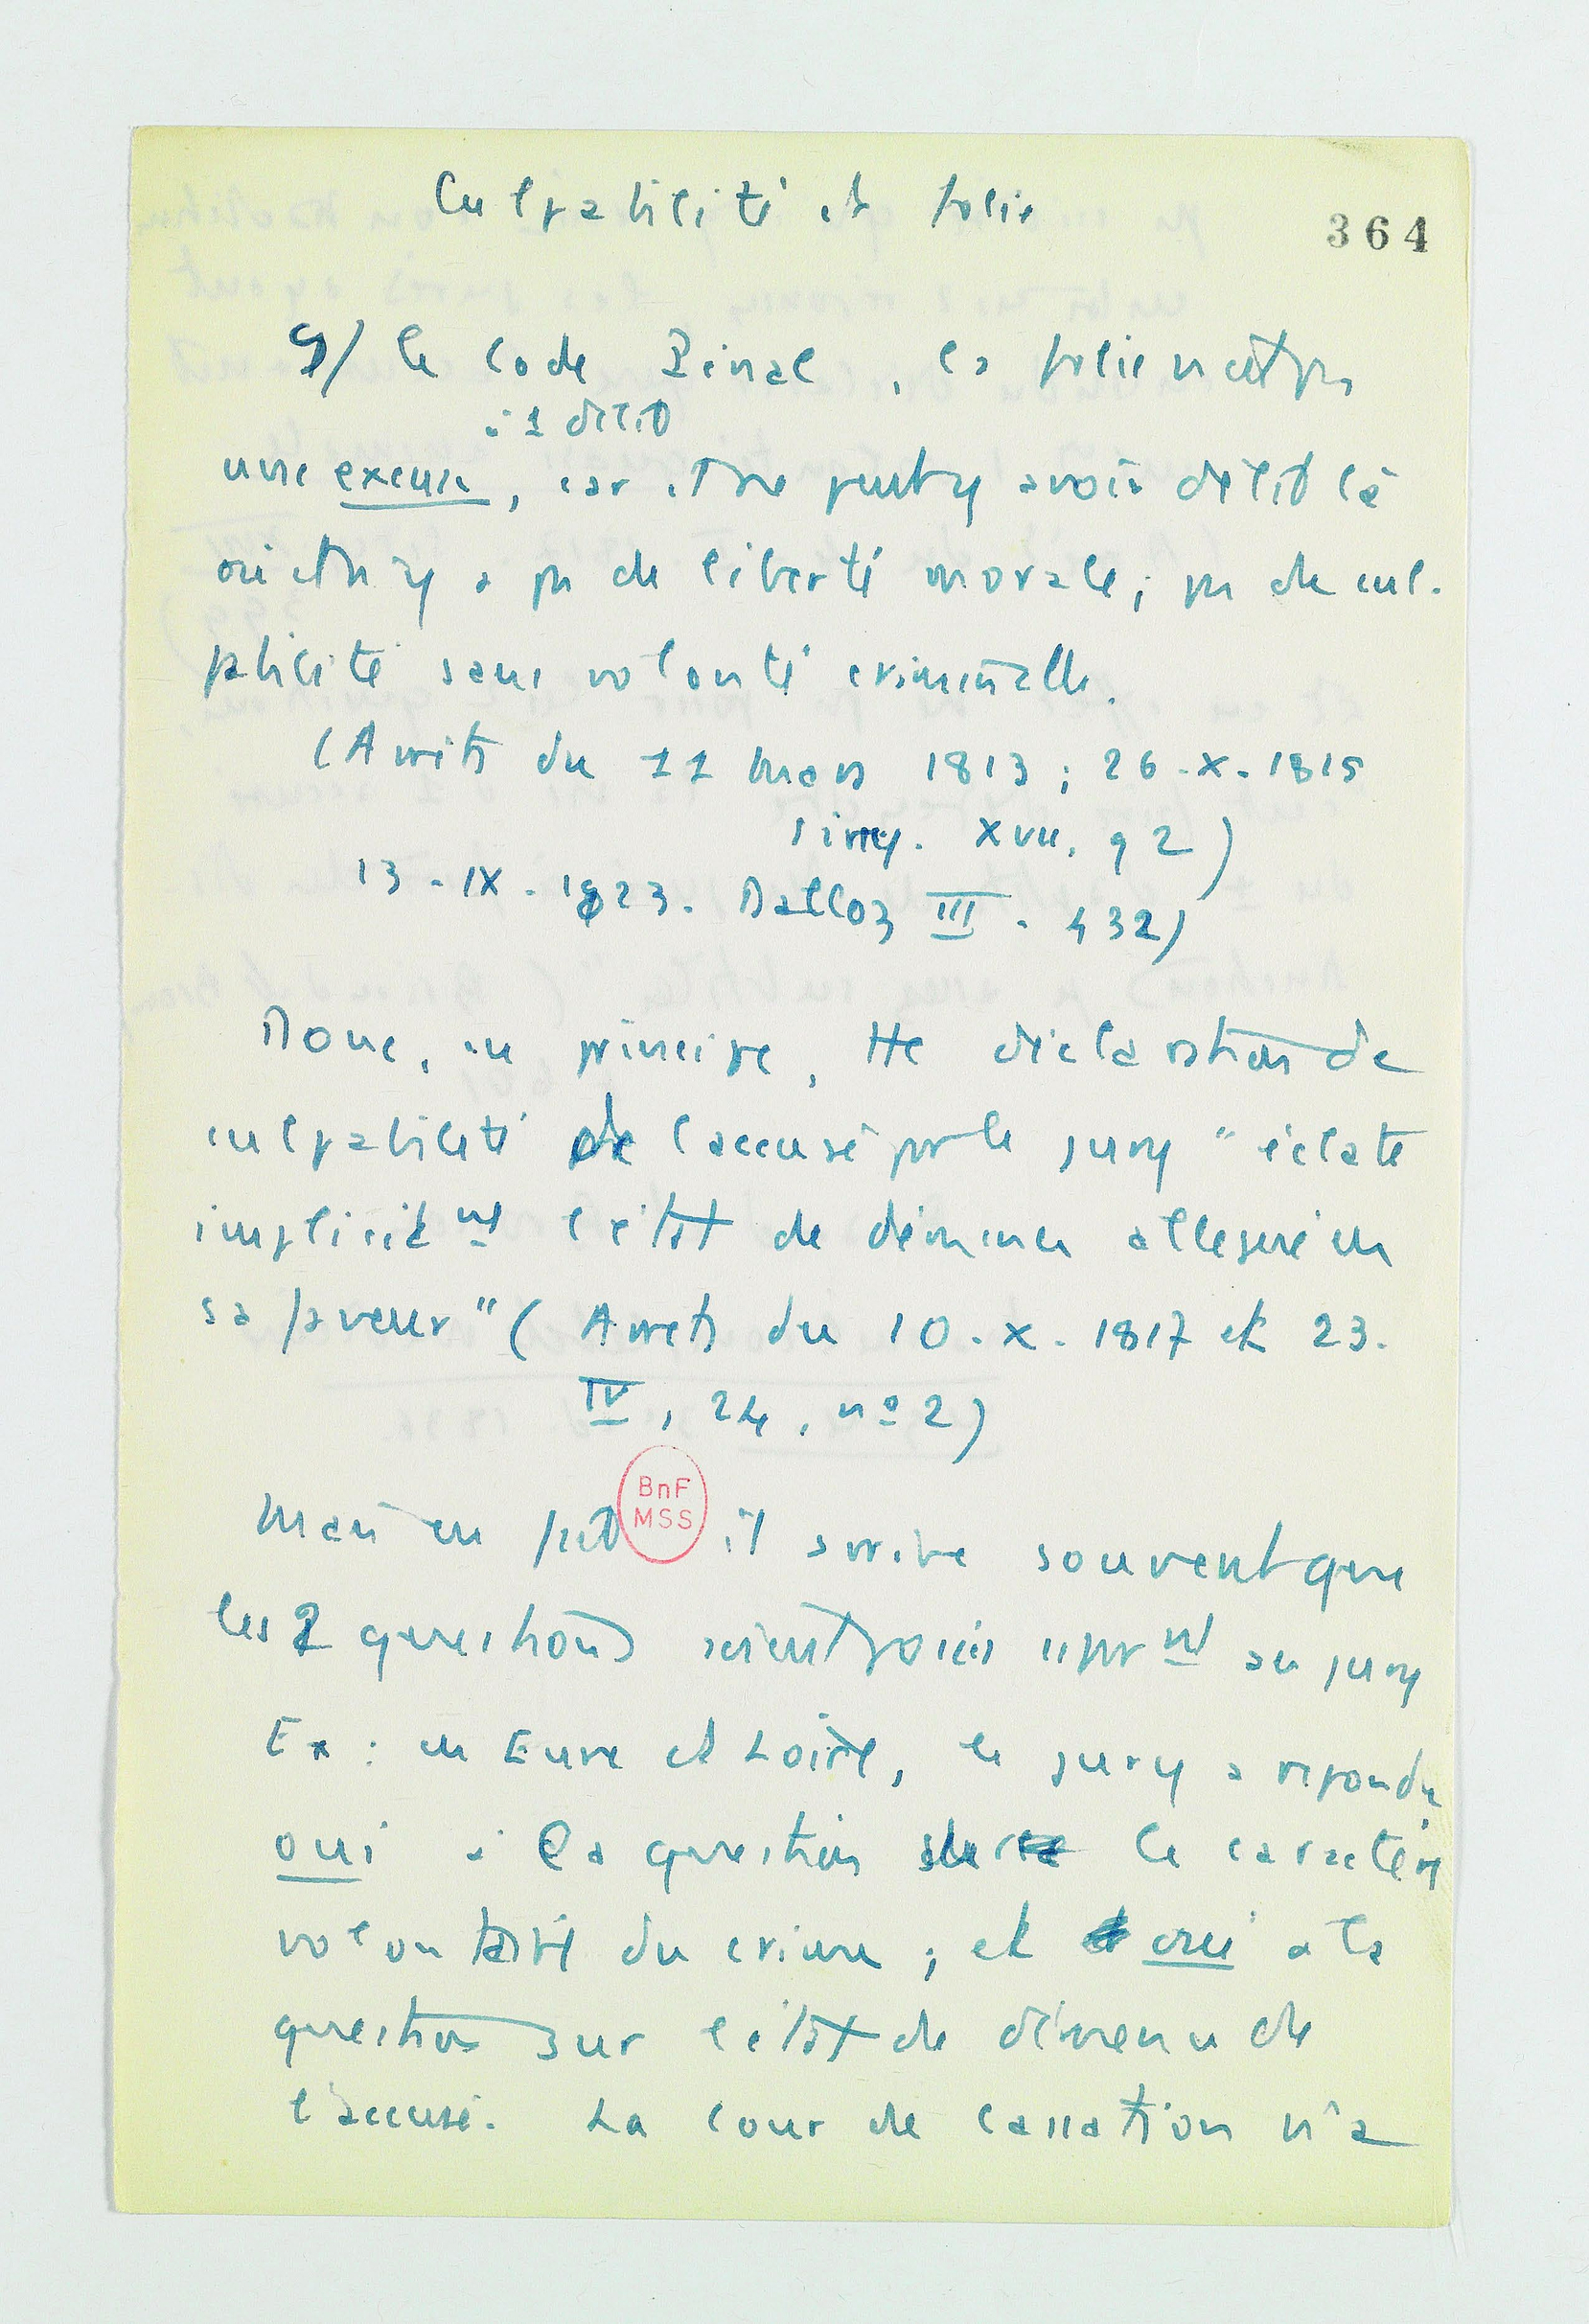 Culpabilité et folie
364
S/ le Code Pénal, la folie n'est pas
à 1 délit
une excuse, car il ne peut y avoir délit là
où il n'y a pas de liberté morale; pas de cul-
pabilité sans volonté criminelle.
(Arrêts du 11 mars 1813; 26-X-1815
Sirey. XVII, 92)
13-IX-1823. Dalloz III. 432)
Donc, en principe, tte déclaration de
culpabilité de l'accusé par le jury "éclate
implicitmt l'état de démence alléguée en
sa faveur" (Arrêts du 10-X-1817 et 23.
IV, 24, nº 2)
BnF
MSS
Mais en fait il arrive souvent que
les 2 questions soient posées sépmt au jury
Ex: en Eure et Loire, le jury a répondu
oui à la question sur le caractère
volontaire du crime; et oui à la
question sur l'état de démence de
l'accusé. La Cour de Cassation n'a